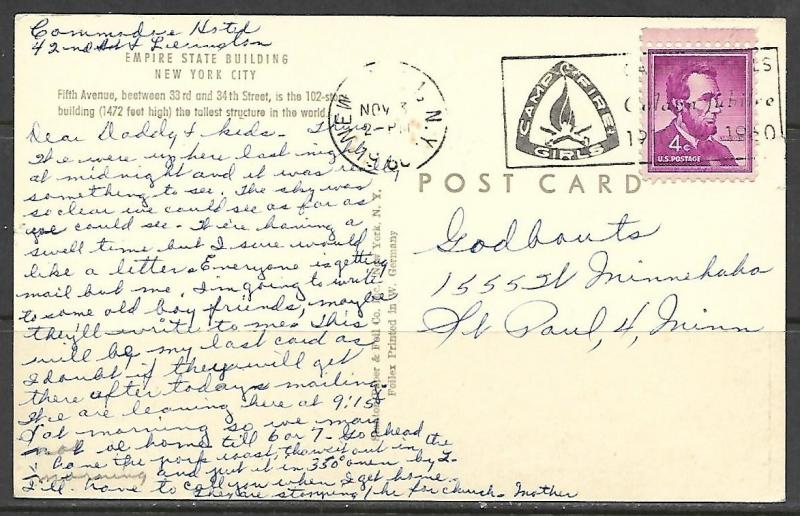 Commodore Hotel
42nd St & Lexington
EMPIRE STATE BUILDING
NEW YORK CITY
Fifth Avenue, beetween 33rd and 34th Street, is the 102-sto
building (1472 feet high) the tallest structure in the world
Dear Daddy & kids -
We were up here last night
at midnight and it was really
something to see. The sky was
so clear we could see as far as
we could see - We're having a
swell time but I sure would
like a letter. Everyone is getting
mail but me. I'm going to write
to some old boy friends, maybe
they'll write to me. This
will be my last card as
I doubt if they will get
there after today's mailing.
We are leaving here at 9:15
Sat morning so we may
not be home till 6 or 7 - Go ahead
bone the pork roast, thaw it out in the
morning and put it in 350° oven by 2 -
I'll have to call you when I get home.
They are stopping 1 hr for church - Mother
POST CARD
NEW N.Y.
NOV 3
2 - PM
CAMP FIRE
GIRLS
Golden Jubilee
1960
4¢
U.S. POSTAGE
Godbouts
1555 W Minnehaha
St Paul, 4, Minn
& Fell Co. New York, N. Y.
Foilex Printed in W. Germany